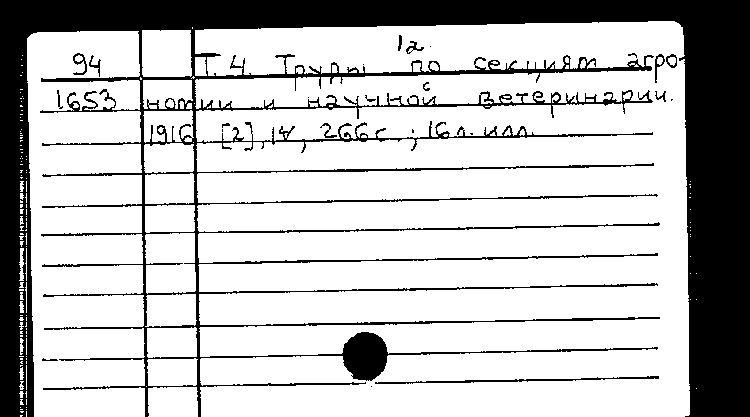 1а
94 Т. 4. Труды по секциям агро-
1653 номии и научной ветеринарии.
1916 [2], IV, 266 с.; 16 л. илл.